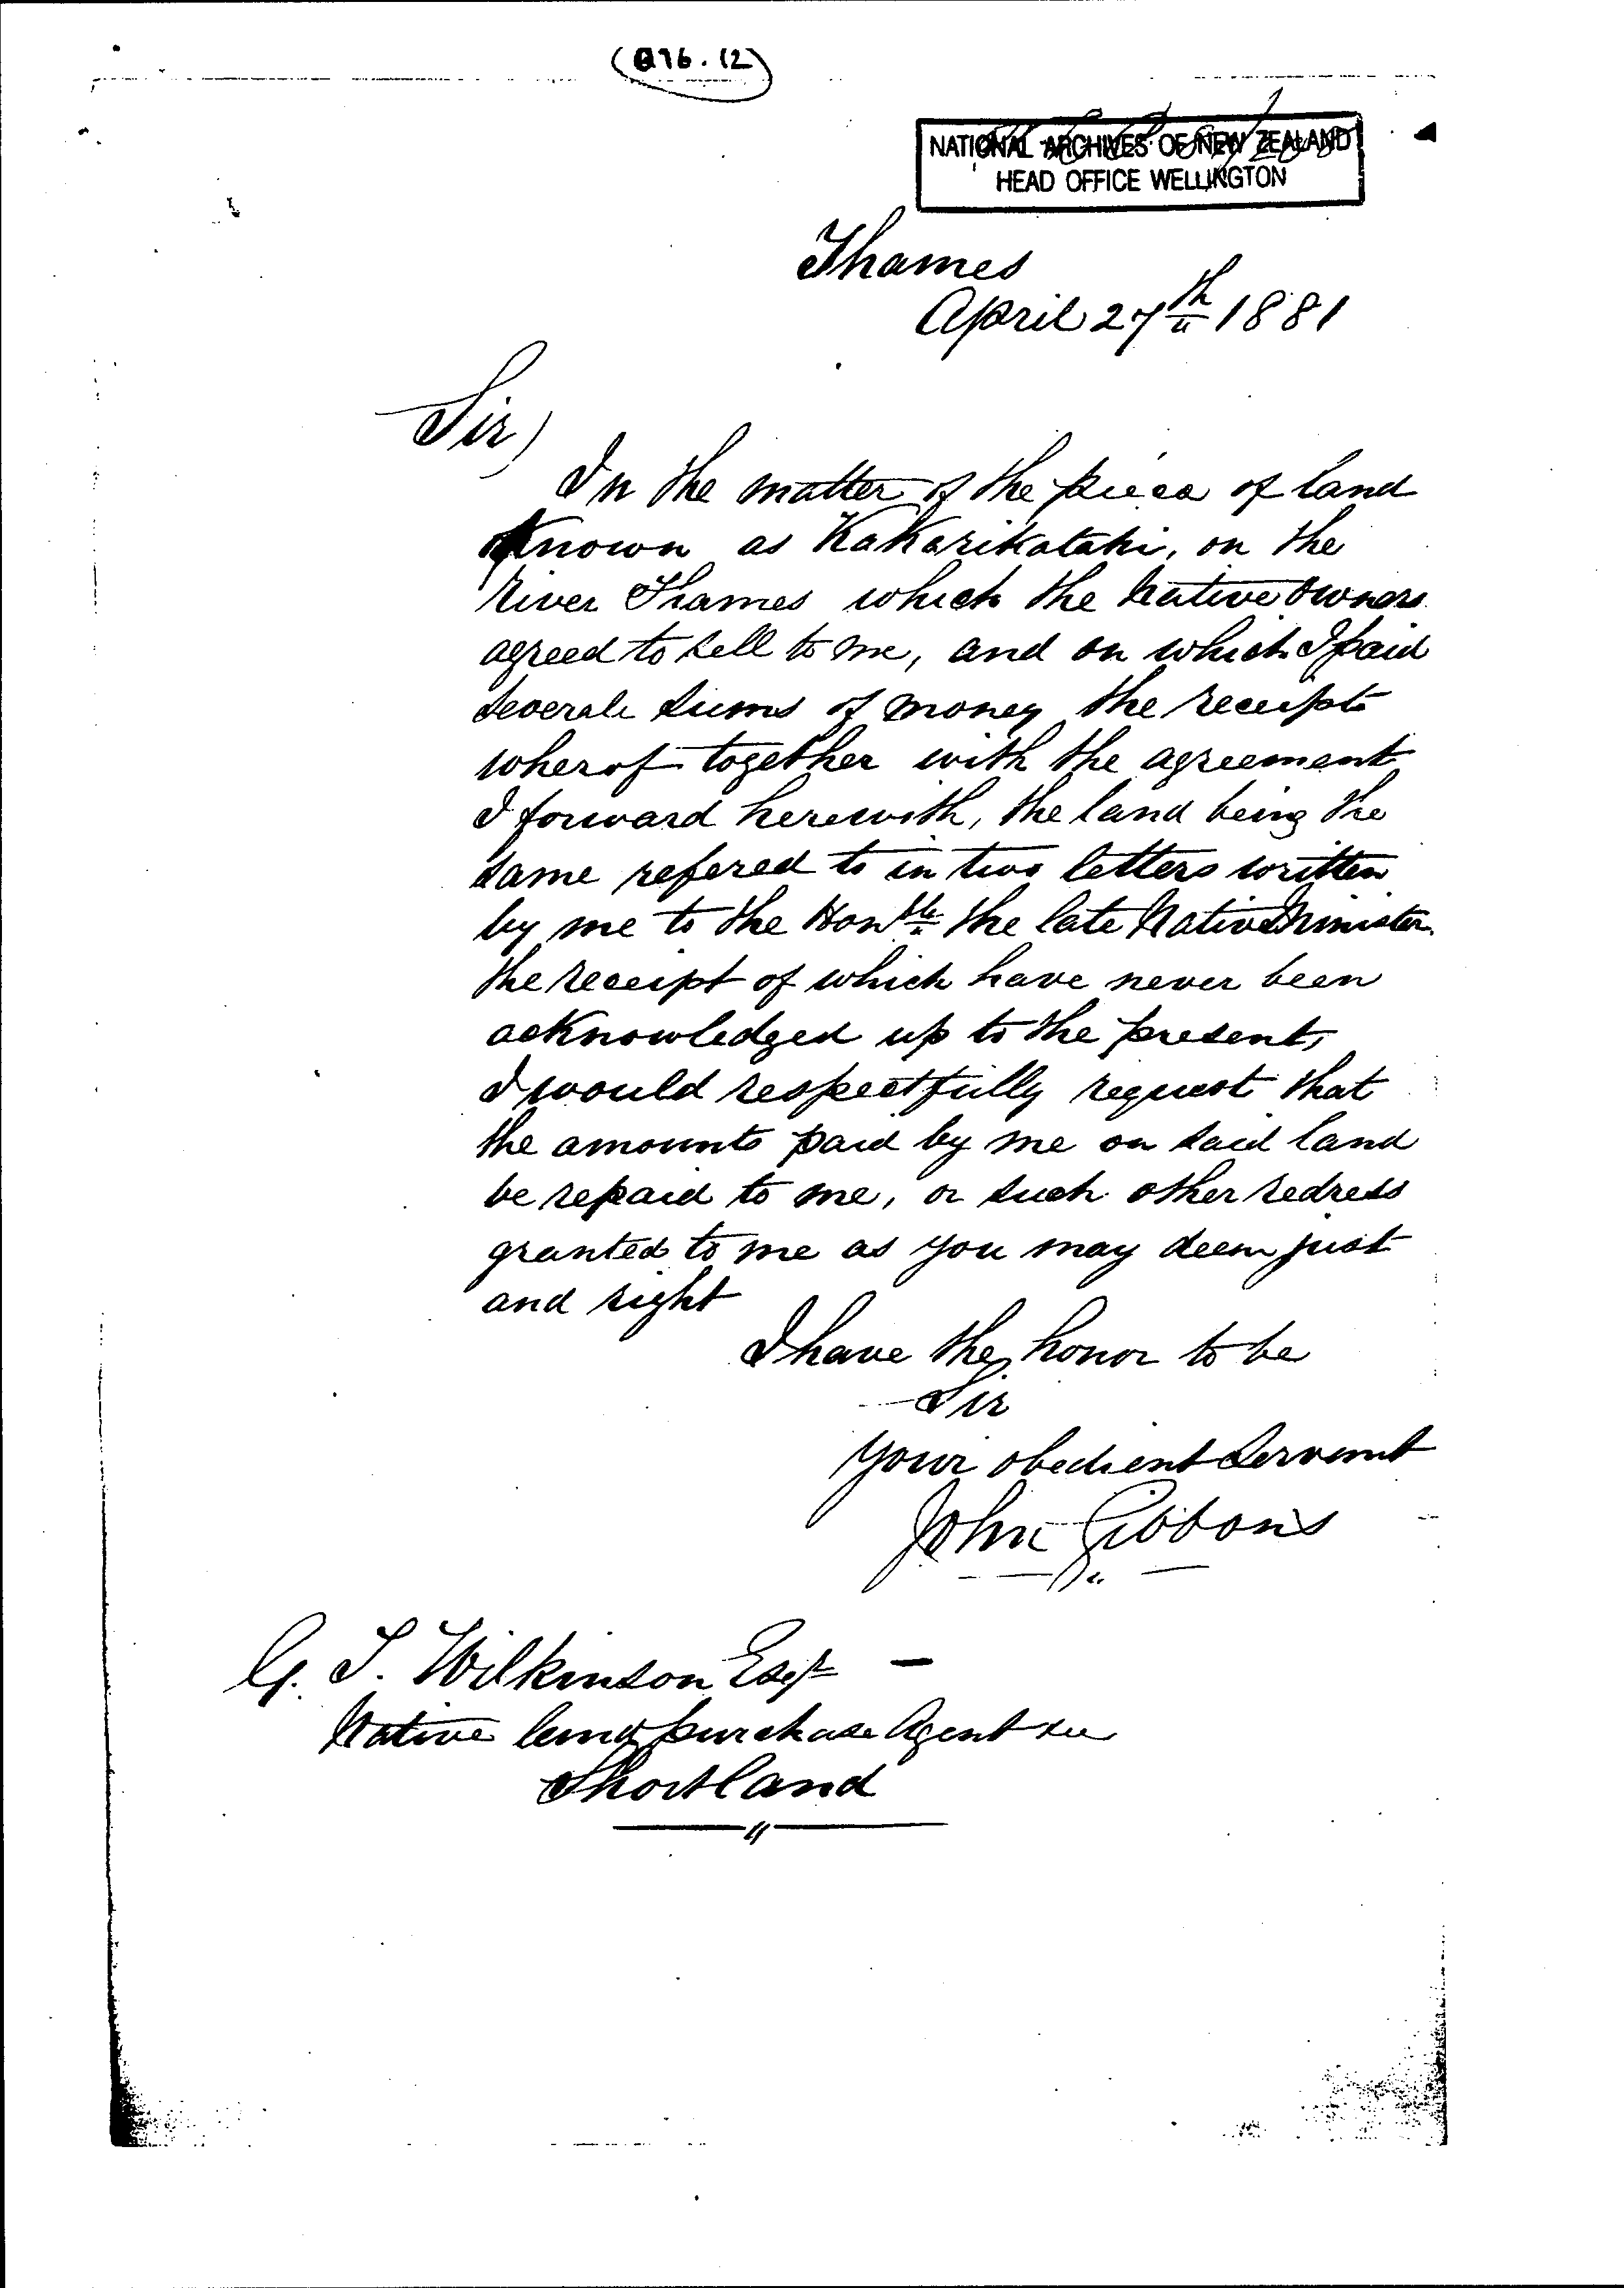 (A96.12)
NATIONAL ARCHIVES OF NEW ZEALAND
HEAD OFFICE WELLINGTON
Thames
April 27th 1881
Sir)
In the matter of the piece of land
known as Kakarikataki, on the
River Thames which the Native owners
agreed to sell to me, and on which I paid
severale sums of money the receipts
wherof together with the agreement
I forward herewith, the land being the
same refered to in two letters written
by me to the Honble the late Native Minister
the receipt of which have never been
acknowledged up to the present,
I would respectfully request that
the amounts paid by me on said land
be repaid to me, or such other redress
granted to me as you may deem just
and right
I have the honor to be
Sir
Your obedient Servant
John Gibbons
G. T. Wilkinson Esqr
Native land purchase Agent
Shortland